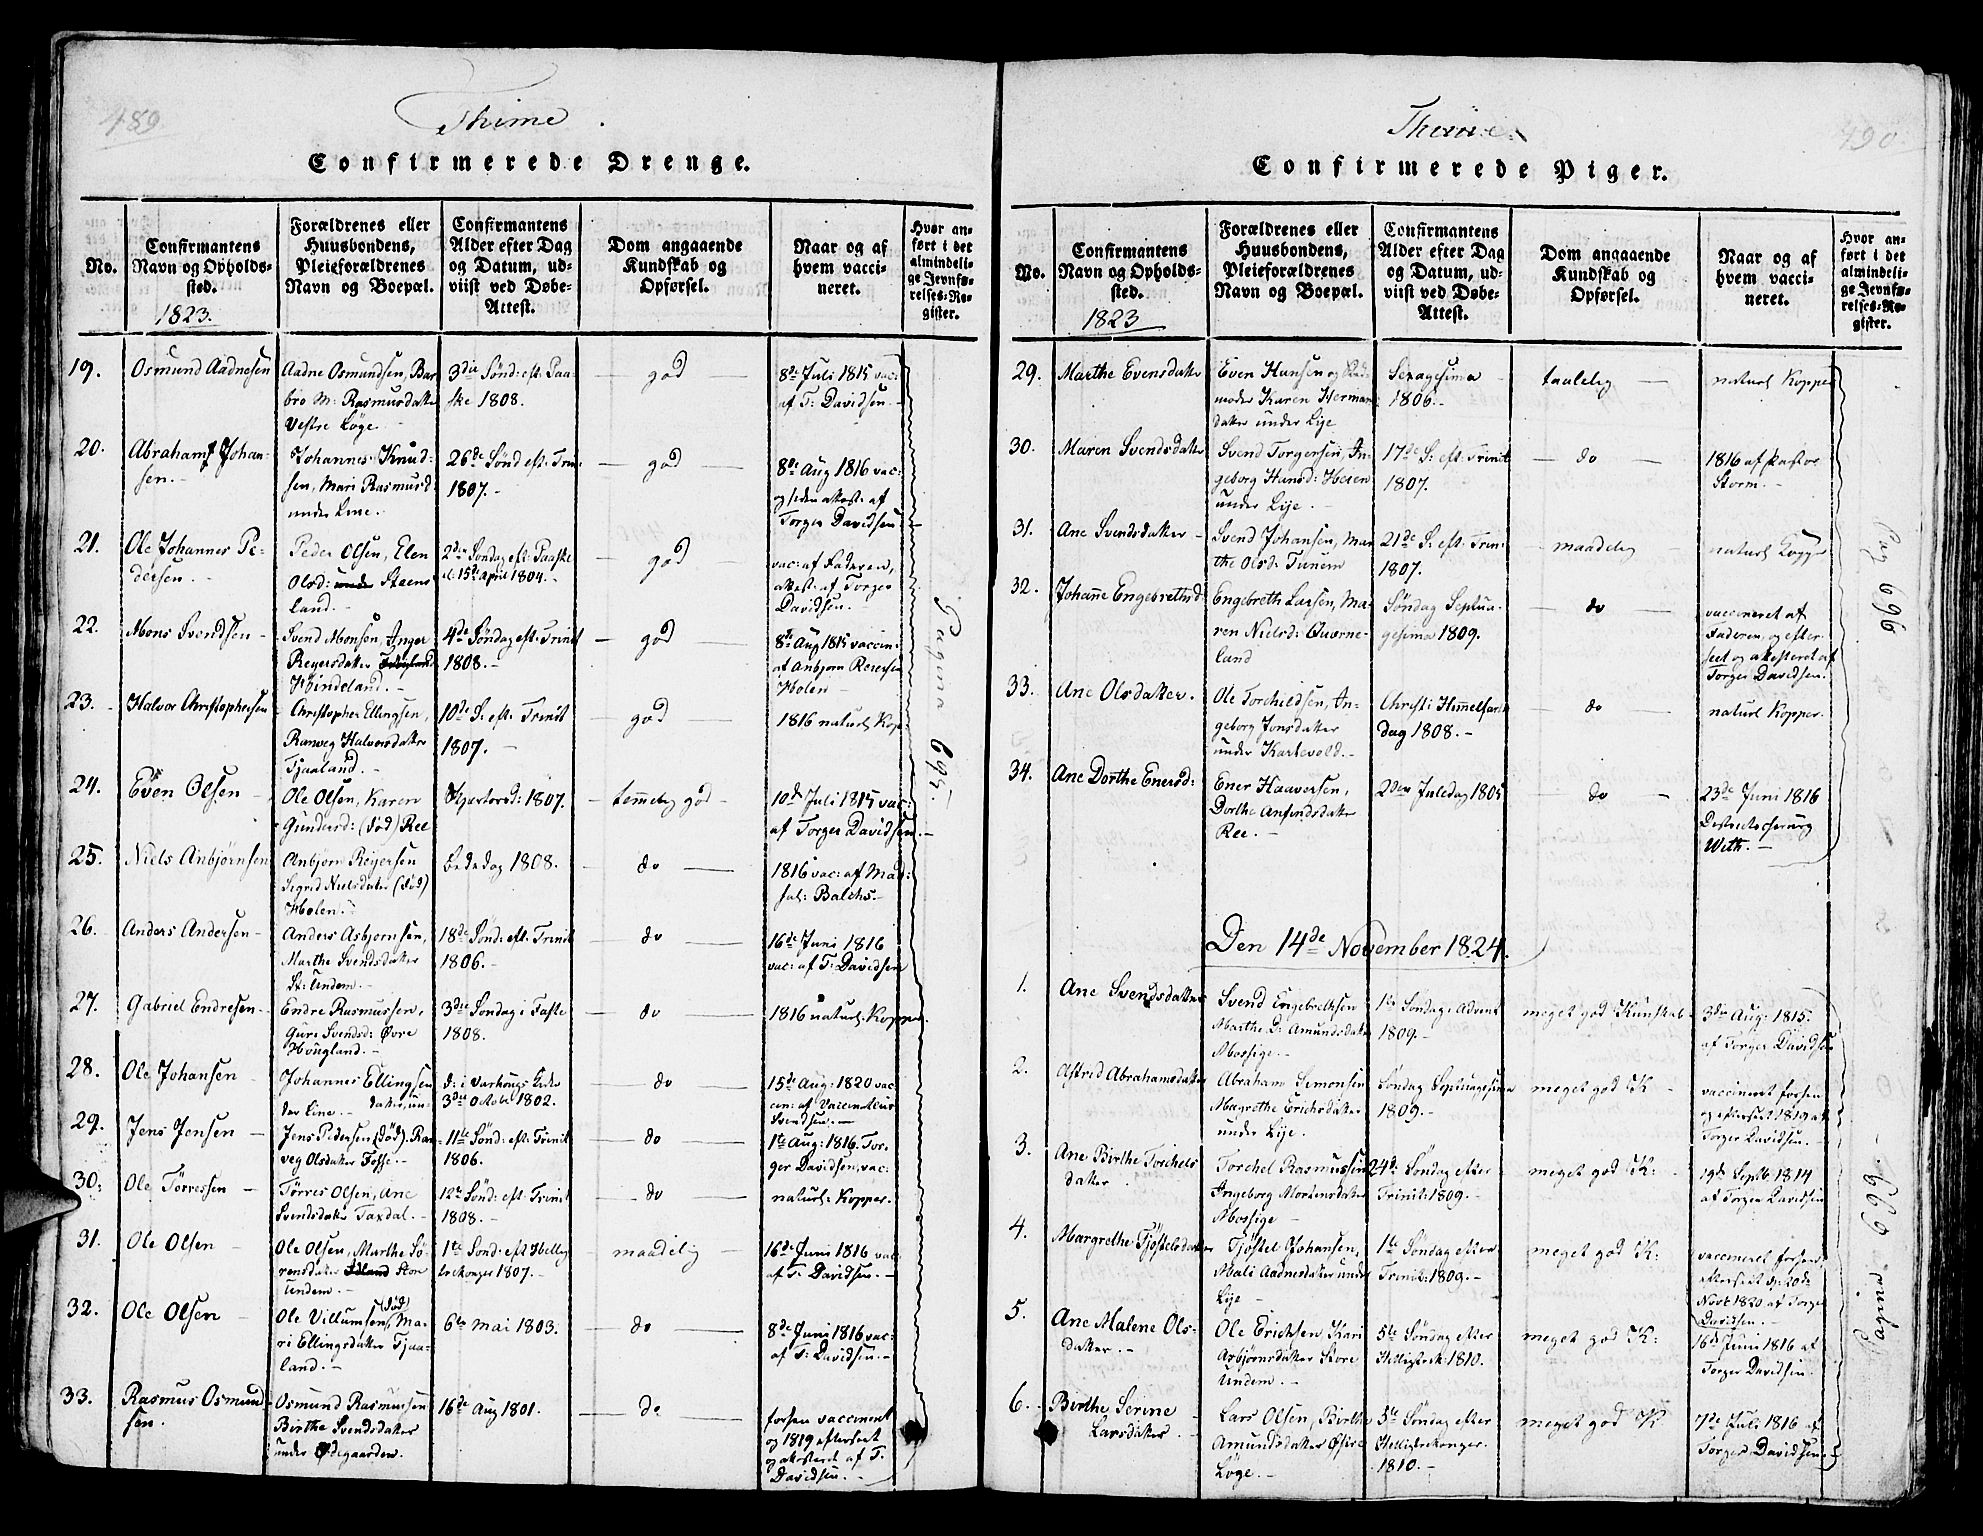 489
Thime
Confirmerede Drenge.
No.
Confirmantens Navn og Opholdssted.
1823.
Forældrenes eller Huusbondens, Pleieforældrenes Navn og Boepæl.
Confirmantens Alder efter Dag og Datum, udviist ved Døbe-Attest.
Dom angaaende Kundskab og Opførsel.
Naar og af hvem vaccineret.
Hvor anført i det almindelige Jevnførelses-Register.
19. Osmund Aadnesen
Aadne Osmundsen, Barbro M: Rasmusdatter Vestre Løge
3die Sønd: eft: Paaske 1808.
god
8de Juli 1815 vac: af T: Davidsen
20. Abraham Johansen.
Johannes Knudsen, Mari Rasmusd: under Line.
26de Sønd eft: Trin: 1807.
god
8de Aug 1816 vac: og siden attest: af Torger Davidsen
21. Ole Johannes Pedersen.
Peder Olsen, Elen Olsd: Steensland.
2den Søndag eft: Paaske d: 15de April 1804.
god
vac: af Faderen, attest: af Torger Davidsen.
22. Mons Svendsen
Svend Monsen, Anger Reyersdatter Høineland.
4de Søndag eft: Trinit 1808.
god
8de Aug 1815 vaccin: af Anbjørn Reiersen Holen
23. Halvor Christophersen
Christopher Ellingsen, Ranveg Halvorsdatter Tjaaland.
10de S: eft: Trinit 1807.
god
1816 naturl. Kop:
24. Even Olsen
Ole Olsen, Karen Gundersd: (død) Ree
Skjærtorsd: 1807.
temmelig god
10de Juli 1815 vac: af Torger Davidsen.
25. Niels Anbjørnsen
Anbjørn Reyersen Sigrid Nielsdatter (død) Holen.
Bededag 1808.
do
1816 vac: af Mad: sal: Balchs.
26. Anders Andersen
Anders Asbjørnsen, Marthe Svendsdatter St: Undem.
18de Sønd: eft: Trinit 1806.
do
16de Juni 1816 vac: af T: Davidsen
27. Gabriel Endresen
Endre Rasmussen, Guri Svendsd: Øvre Høugland.
3die Søndag i Faste 1808.
do
1816 naturl. Kopper.
28. Ole Johansen
Johannes Ellingsen datter, under Line.
3die October 1802.
do
15de Aug: 1820 vaccin: af Svendsen.
29. Jens Jensen
Jens Pedersen (død). Ranveg Olsdatter Fosse.
11te Sønd: eft: Trinit 1806.
do
1te Aug: 1816 Torger Davidsen, vac:
30. Ole Tørressen
Tørres Olsen, Ane Svendsdatter Taxdal.
12te Sønd: eft: Trinit 1808.
do
naturl: Kopper.
31. Ole Olsen
Ole Olsen, Marthe Sørensdatter Store Undem.
1te Sønd: eft Hellig trekonger 1807.
maadelig
16de Juni 1816 vac: af T: Davidsen.
32. Ole Olsen
Ole Villumsen (død), Mari Ellingsdatter Tjaaland.
6te Mai 1803.
do
8de Juni 1816 vac: af T: Davidsen.
33. Rasmus Osmundsen.
Osmund Rasmussen Birthe Svendsdatter under Ødegaarden.
16de Aug 1801.
do
forsen vaccineret og 1819 efterseet og attesteret af T. Davidsen.
Pagina 695.
490
Thime
Confirmerede Piger.
No.
Confirmantens Navn og Opholdssted.
1823
Forældrenes eller Huusbondens, Pleieforældrenes Navn og Boepæl.
Confirmantens Alder efter Dag og Datum, udviist ved Døbe-Attest.
Dom angaaende Kundskab og Opførsel.
Naar og af hvem vaccineret.
Hvor anført i det almindelige Jevnførelses-Register.
29. Marthe Evensdatter
Even Hansen og moder Karen Hermansdatter under Lye
Sexagesima 1806.
taalelig
naturl Kopper
30. Maren Svendsdatter
Svend Torgersen, Ingeborg Hansd: under Lye.
17de S: eft: Trinit 1807.
do
1816 af Pastor Storm.
31. Ane Svendsdatter
Svend Johansen, Marthe Olsd: Tunem
21de S: eft: Trinit 1807.
maadelig
naturl Kopp
32. Johanne Engebrethsd:
Engebreth Larsen, Maren Nielsd: Qværneland
Søndag Septuagesima 1809.
do
vaccineret af Faderen, og efterseet og attesteret af Torger Davidsen.
33. Ane Olsdatter.
Ole Torchildsen, Angeborg Jonsdatter under Kartevold.
Christi Himmelfarts dag 1808.
do
naturl Kopper.
34. Ane Dorthe Enersd:
Ener Haaversen, Dorthe Anfindsdatter Ree.
2den Juledag 1805
do
23de Juni 1816 Districtschirurg With.
Pag 696
Den 14de November 1824.
1. Ane Svendsdatter
Svend Engebrethsen Marthe D: Amundsdatter Mossige.
1te Søndag i Advent 1809.
meget god Kundskab
3die Aug: 1815. af Torger Davidsen
2. Astrid Abrahamsdatter
Abraham Simonsen Magrethe Erichsdatter under Lye.
Søndag Septuagesima 1809.
meget god K
vaccineret forsen og efterseet 1819 af Torger Davidsen.
3. Ane Birthe Torchelsdatter
Torchel Rasmussen Angeborg Mortensdatter Mossige
24de Søndag efter Trinit: 1809.
meget god K:
19de Septb 1814 af Torger Davidsen
4. Margrethe Tjøstelsdatter
Tjøstel Johansen, Mali Aadnesdatter under Lye
1te Søndag efter Trinit: 1809.
meget god K:
vaccineret forsen, efterseet d: 20de Novb 1820 af Torger Davidsen.
5. Ane Malene Olsdatter.
Ole Erichsen, Kari Asbjørnsdatter Store Undem.
5te Søndag efter Helligtrek: 1810.
meget god K:
16de Juni 1816 af Torger Davidsen.
6. Birthe Serine Larsdatter.
Lars Olsen, Birthe Amundsdatter Østre Løge.
5te Søndag efter Helligtrekonger. 1810.
meget god K
7de Juli 1816 af Torger Davidsen.
Pagina 699.